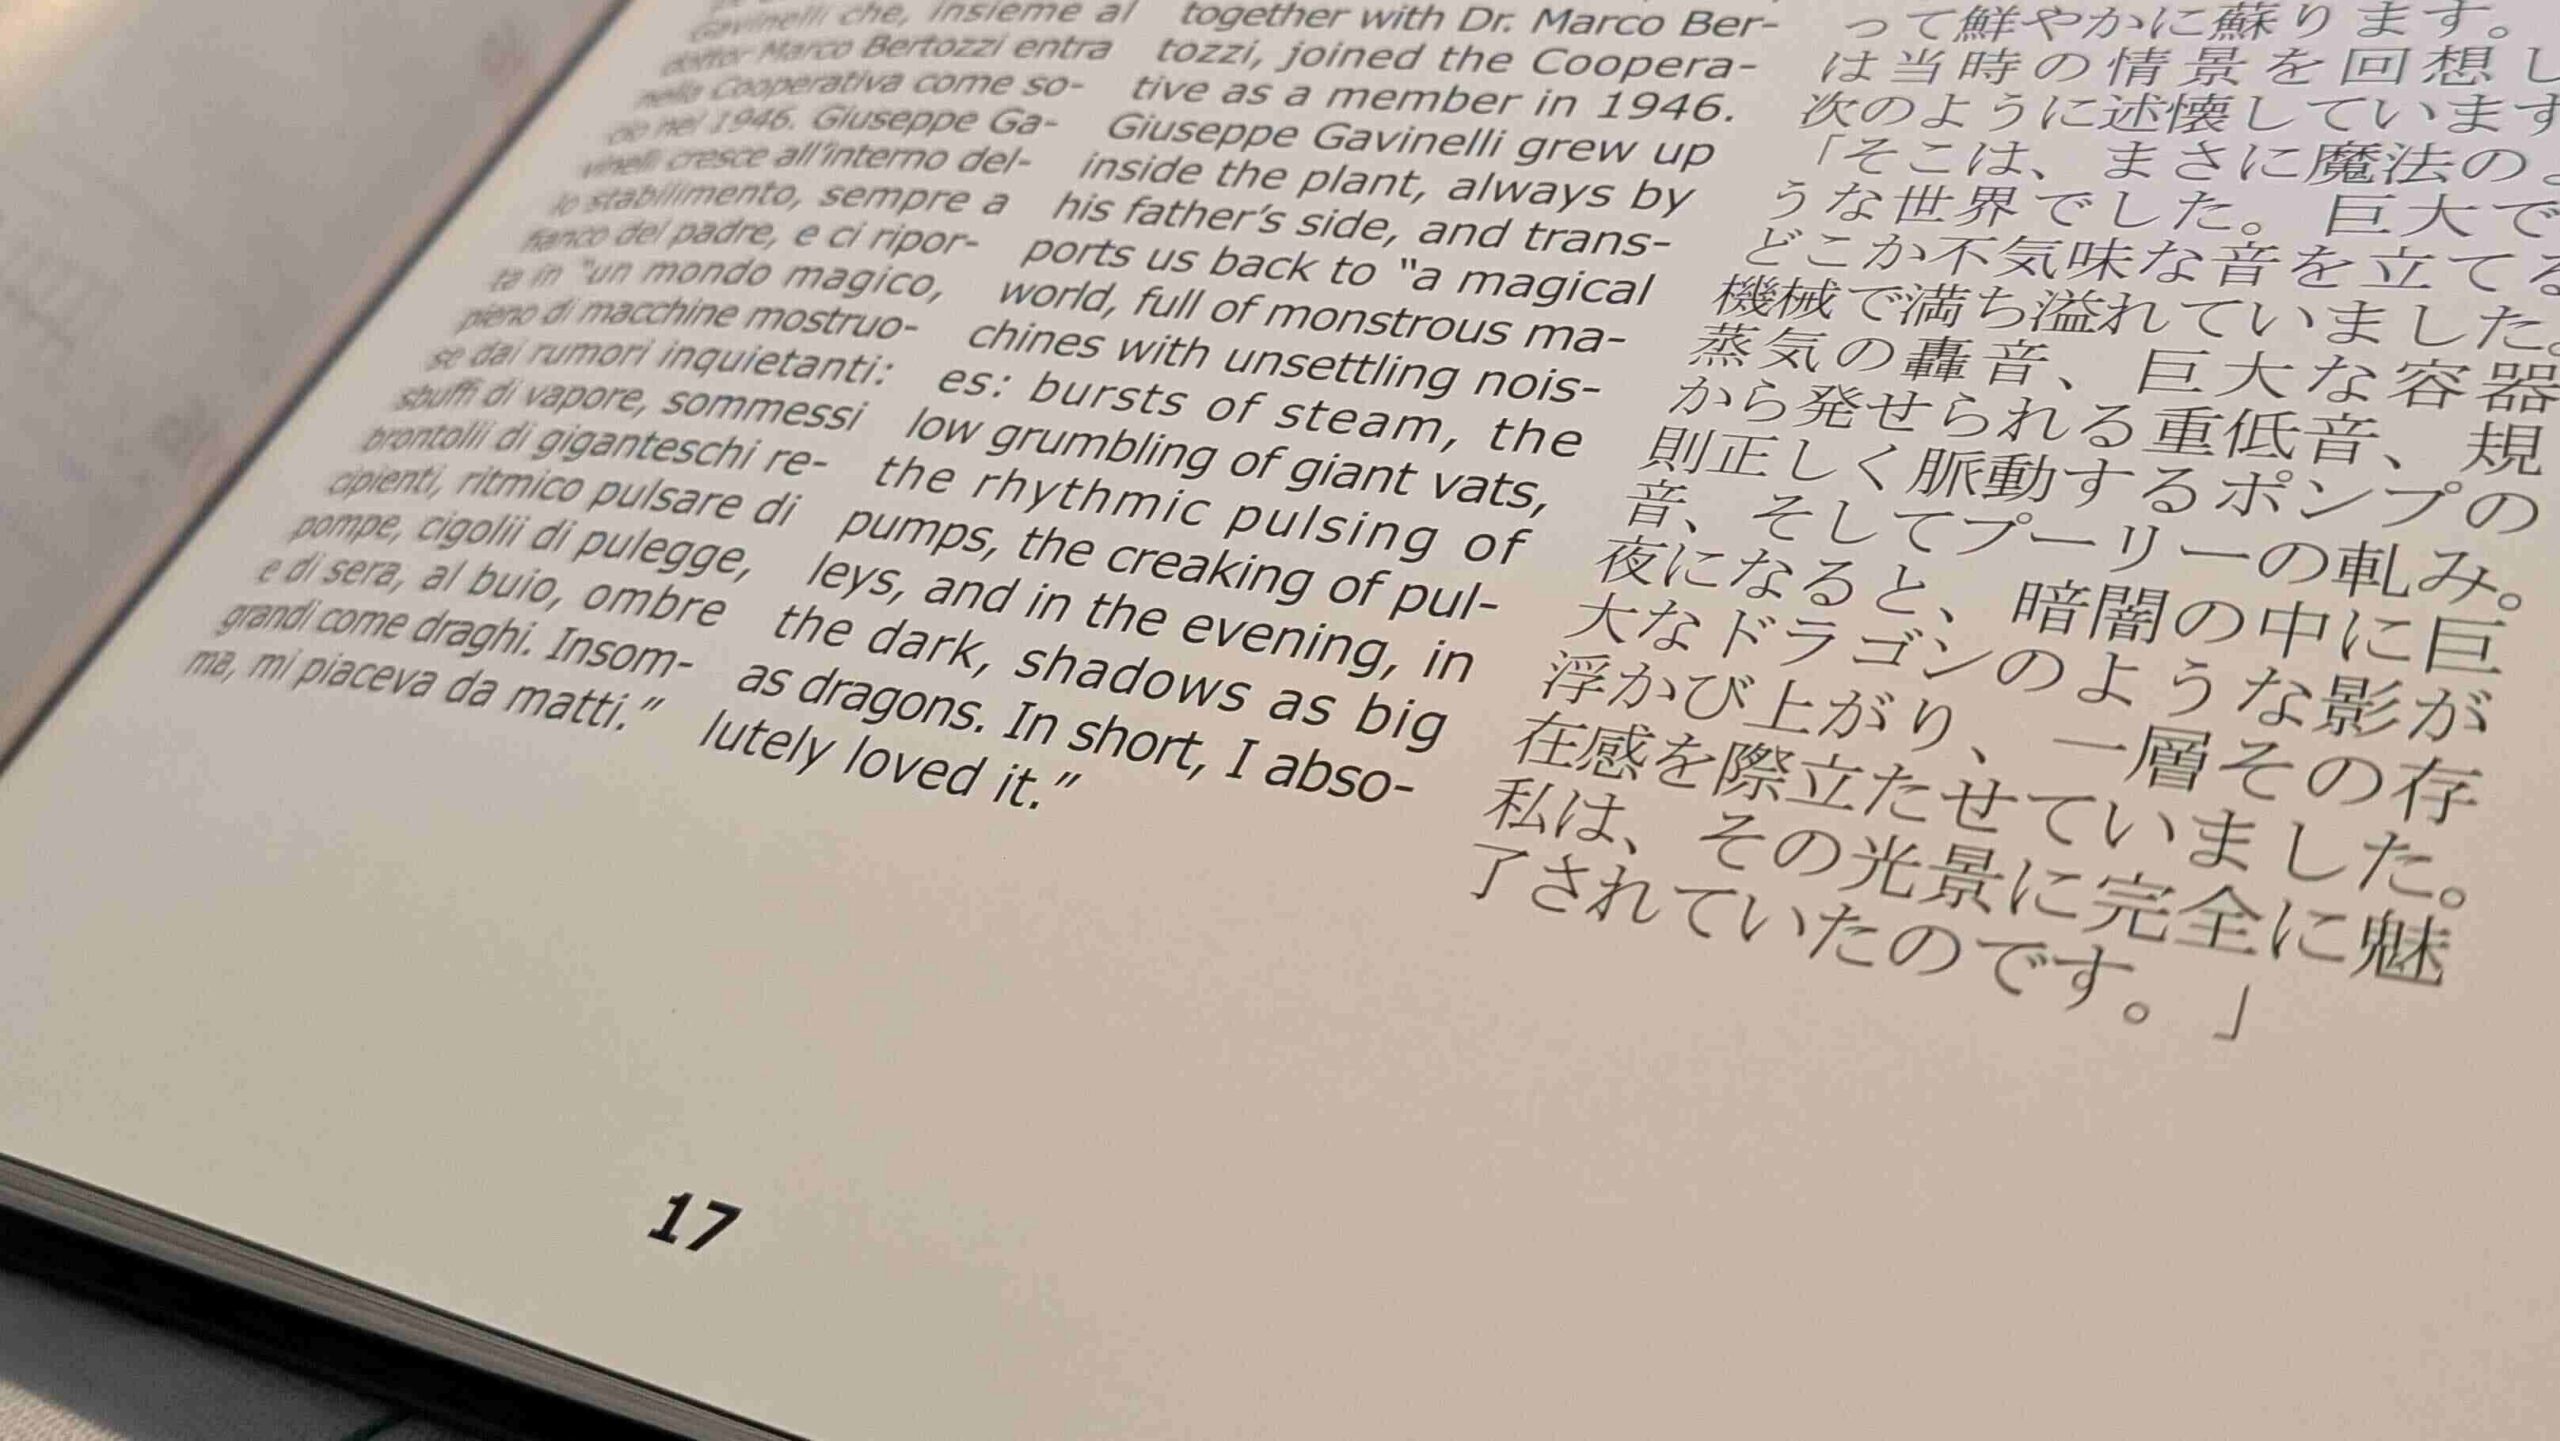 Gavinelli che, insieme al
dottor Marco Bertozzi entra
nella Cooperativa come so-
cio nel 1946. Giuseppe Ga-
vinelli cresce all'interno del-
lo stabilimento, sempre a
fianco del padre, e ci ripor-
ta in "un mondo magico,
pieno di macchine mostruo-
se dai rumori inquietanti:
sbuffi di vapore, sommessi
brontolii di giganteschi re-
cipienti, ritmico pulsare di
pompe, cigolii di pulegge,
e di sera, al buio, ombre
grandi come draghi. Insom-
ma, mi piaceva da matti."
together with Dr. Marco Ber-
tozzi, joined the Coopera-
tive as a member in 1946.
Giuseppe Gavinelli grew up
inside the plant, always by
his father's side, and trans-
ports us back to "a magical
world, full of monstrous ma-
chines with unsettling nois-
es: bursts of steam, the
low grumbling of giant vats,
the rhythmic pulsing of
pumps, the creaking of pul-
leys, and in the evening, in
the dark, shadows as big
as dragons. In short, I abso-
lutely loved it."
って鮮やかに蘇ります。
は当時の情景を回想し
次のように述懐しています
「そこは、まさに魔法のよ
うな世界でした。巨大で
どこか不気味な音を立てる
機械で満ち溢れていました。
蒸気の轟音、巨大な容器
から発せられる重低音、規
則正しく脈動するポンプの
音、そしてプーリーの軋み。
夜になると、暗闇の中に巨
大なドラゴンのような影が
浮かび上がり、一層その存
在感を際立たせていました。
私は、その光景に完全に魅
了されていたのです。」
17